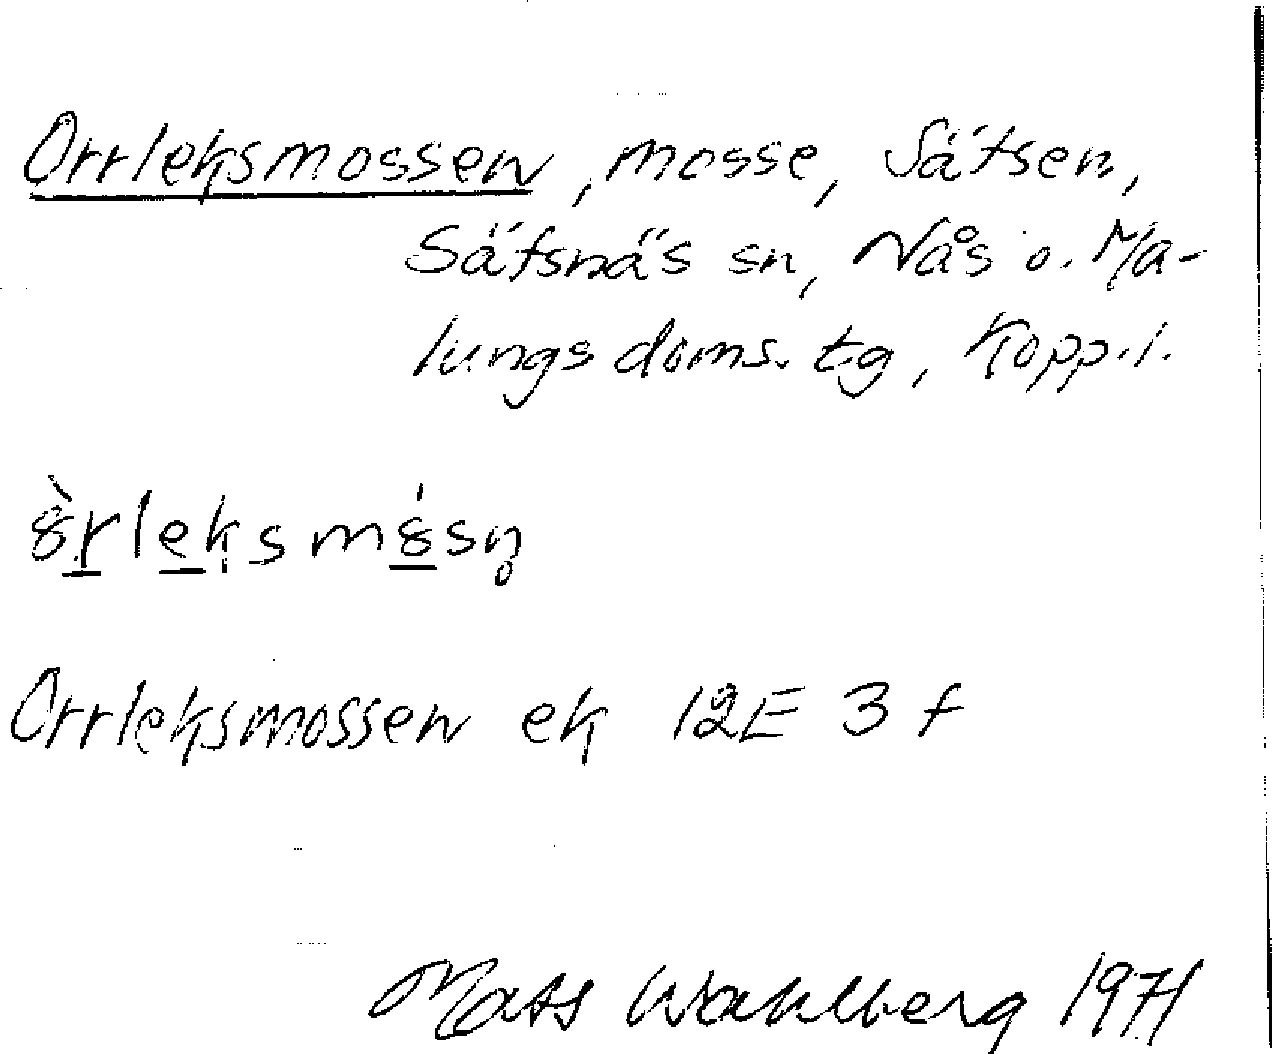 Orrleksmossen, mosse, Sätsen,
Säfsnäs sn, Nås o. Ma-
lungs doms. tg, Kopp. l.
Orrleksmossen ek 12E 3 f
Mats Wahlberg 1971